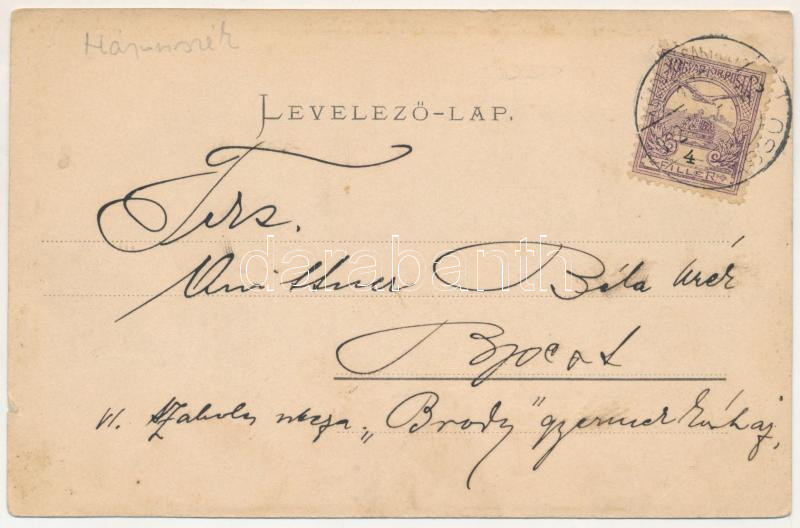 Háromszék
LEVELEZŐ-LAP.
MAGYAR KIR. POSTA
4
FILLÉR
Ters.
Béla úrnak
Bpest
VI. Szabolcs utcza „Brody" gyermek kórház,
darabanth